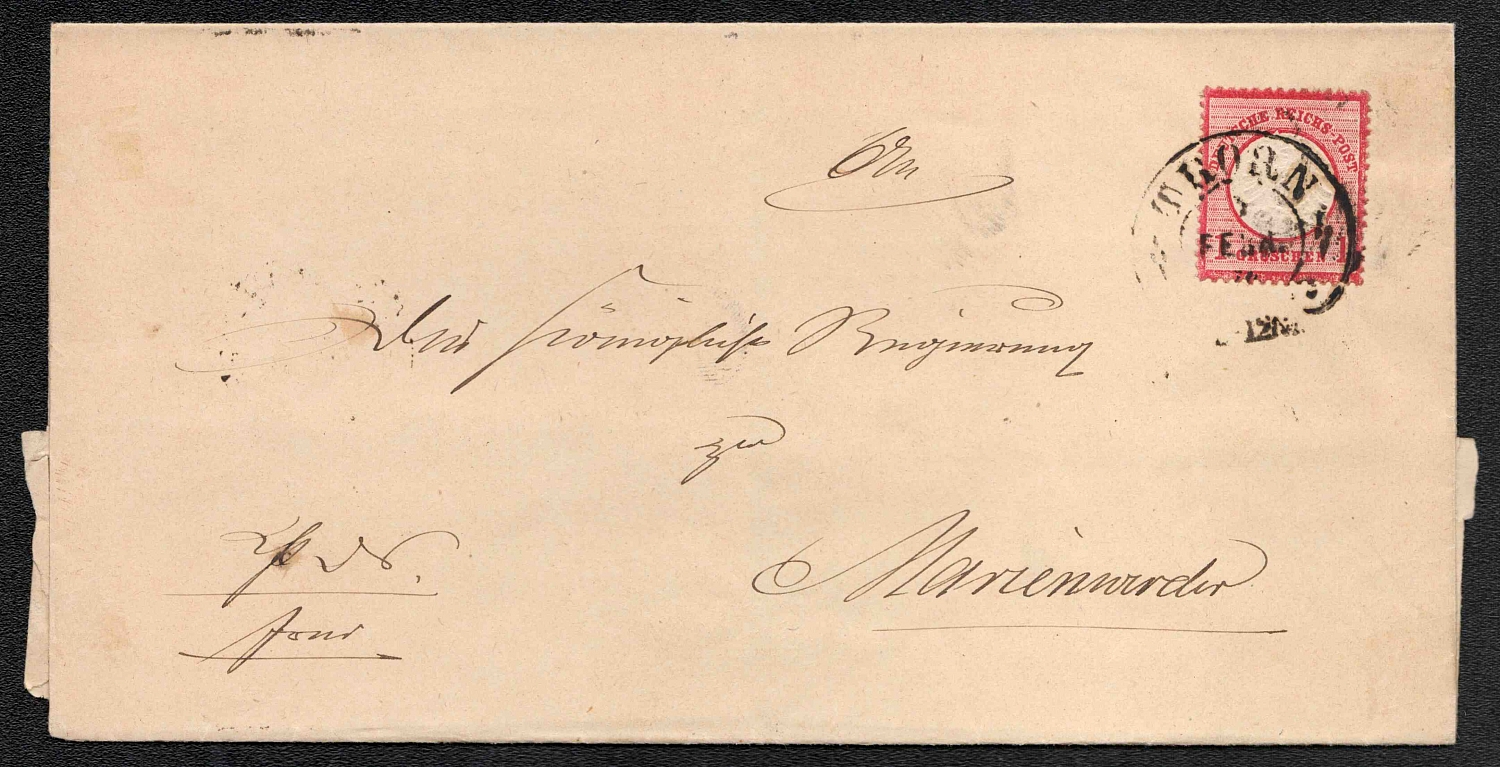 DEUTSCHE REICHS-POST
1 GROSCHEN 1
THORN
An
Die Königliche Regierung
zu
Marienwerder